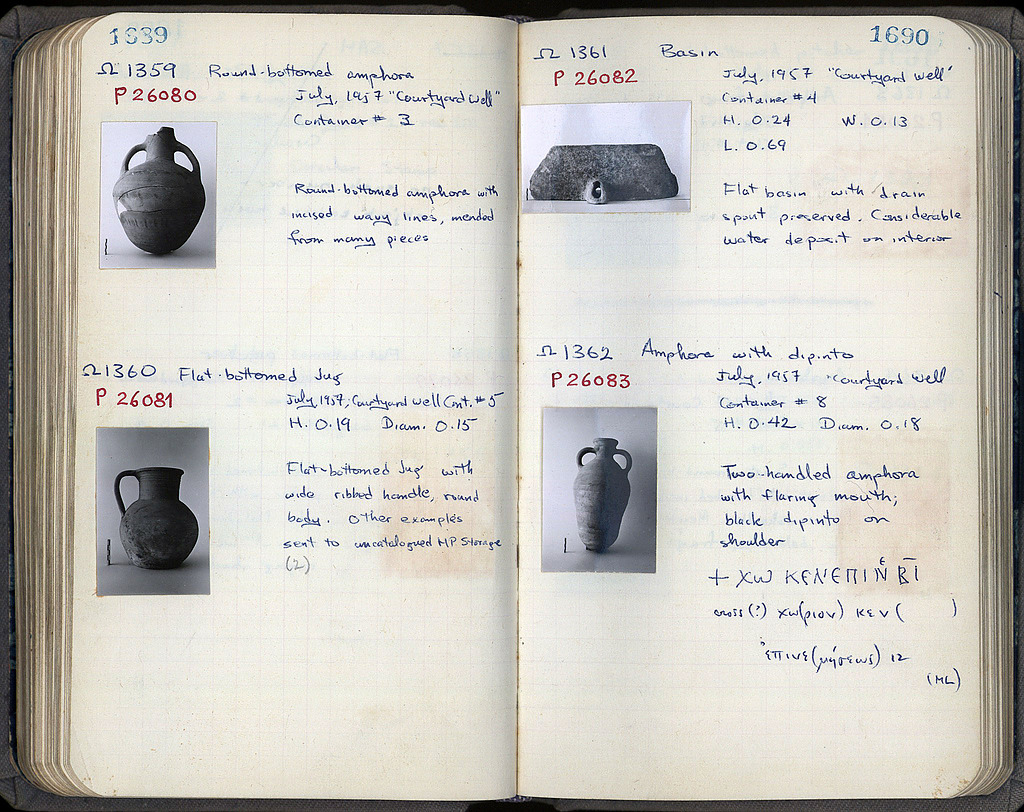 1639
Ω 1359 Round-bottomed amphora
P 26080
July, 1957 "Courtyard Well"
Container # 3
Round-bottomed amphora with
incised wavy lines, mended
from many pieces
Ω 1360 Flat-bottomed Jug
P 26081
July, 1957, Courtyard Well Cont. # 5
H. 0.19 Diam. 0.15
Flat-bottomed Jug with
wide ribbed handle, round
body. Other examples
sent to uncatalogued HP Storage
(2)
1690
Ω 1361 Basin
P 26082
July, 1957 "Courtyard Well"
Container # 4
H. 0.24 W. 0.13
L. 0.69
Flat basin with drain
spout preserved. Considerable
water deposit on interior
Ω 1362 Amphora with dipinto
P 26083
July, 1957 "Courtyard Well
Container # 8
H. 0.42 Diam. 0.18
Two-handled amphora
with flaring mouth;
black dipinto on
shoulder
+ Χω ΚΕΝΕΠΙΝ̅ Ε ΒΙ̅
cross (?) χω(ριον) κεν( )
ἐπινε(μήσεως) 12
(ML)